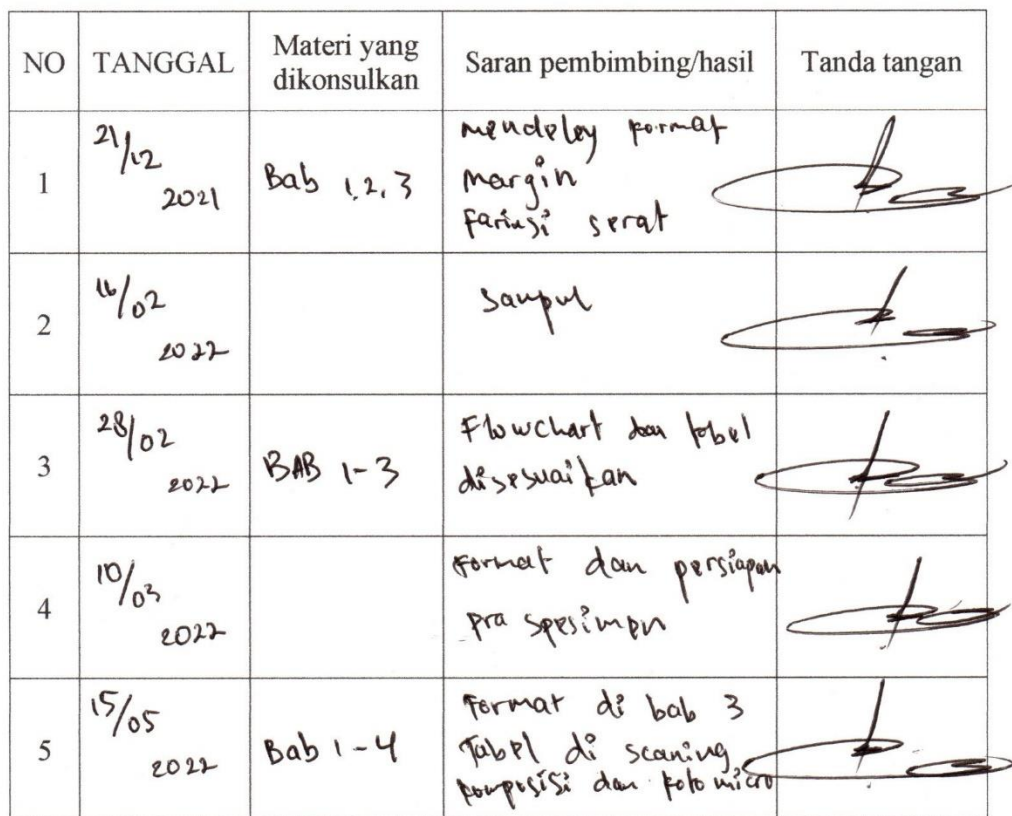 NO TANGGAL Materi yang dikonsulkan Saran pembimbing/hasil Tanda tangan
1 21/12 2021 Bab 1, 2, 3 Mendeley format
margin
fariasi serat
2 16/02 2022 Sampul
3 28/02 2022 BAB 1-3 Flowchart dan tabel
disesuaikan
4 10/03 2022 Format dan persiapan
pra spesimen
5 15/05 2022 Bab 1-4 Format di bab 3
Tabel di scaning
komposisi dan foto micro